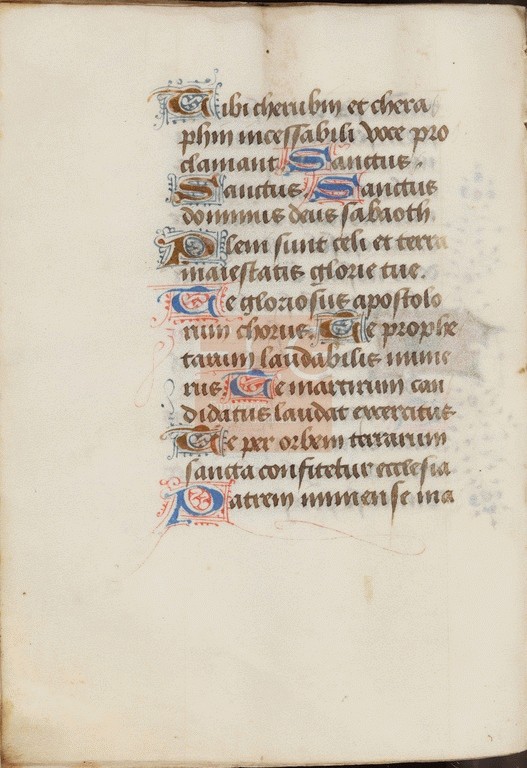 Tibi cherubin et chera
phin incessabili voce pro
clamant Sanctus
Sanctus Sanctus
dominus deus sabaoth
Pleni sunt celi et terra
maiestatis glorie tue.
Te gloriosus apostolo
rum chorus. Te prophe
tarum laudabilis nume
rus Te martirum can
didatus laudat excercitus
Te per orbem terrarum
sancta confitetur ecclesia
Patrem immense ma